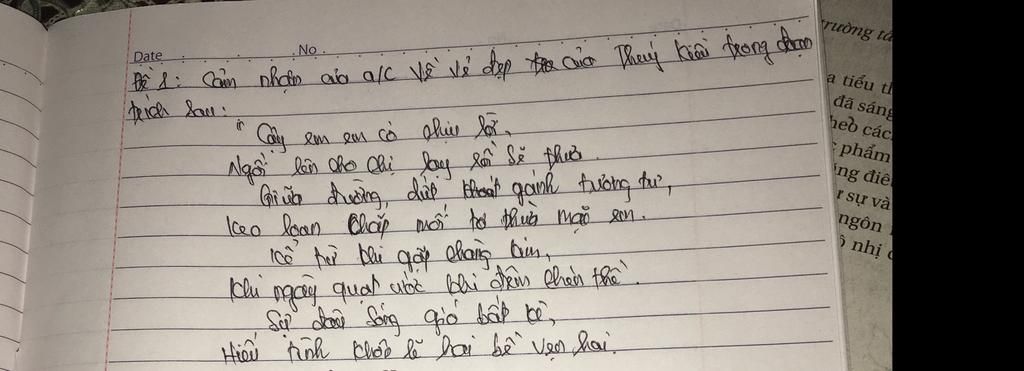 Date No.
Đề 1: Cảm nhận của a/c về vẻ đẹp của Thuý Kiều trong đoạn
trích sau:
" Cậy em em có chịu lời,
Ngồi lên cho chị lạy rồi sẽ thưa.
Giữa đường, đứt khoát gánh tương tư,
Keo loan chắp mối tơ thừa mặc em.
Kể từ khi gặp chàng kim,
Khi ngày quạt ước khi đêm chén thề.
Sự đâu sóng gió bất kì,
Hiếu tình khôn lẽ hai bề vẹn hai.
trường
a tiểu
đã sáng
theo các
phẩm
sự và
ngôn
nhị